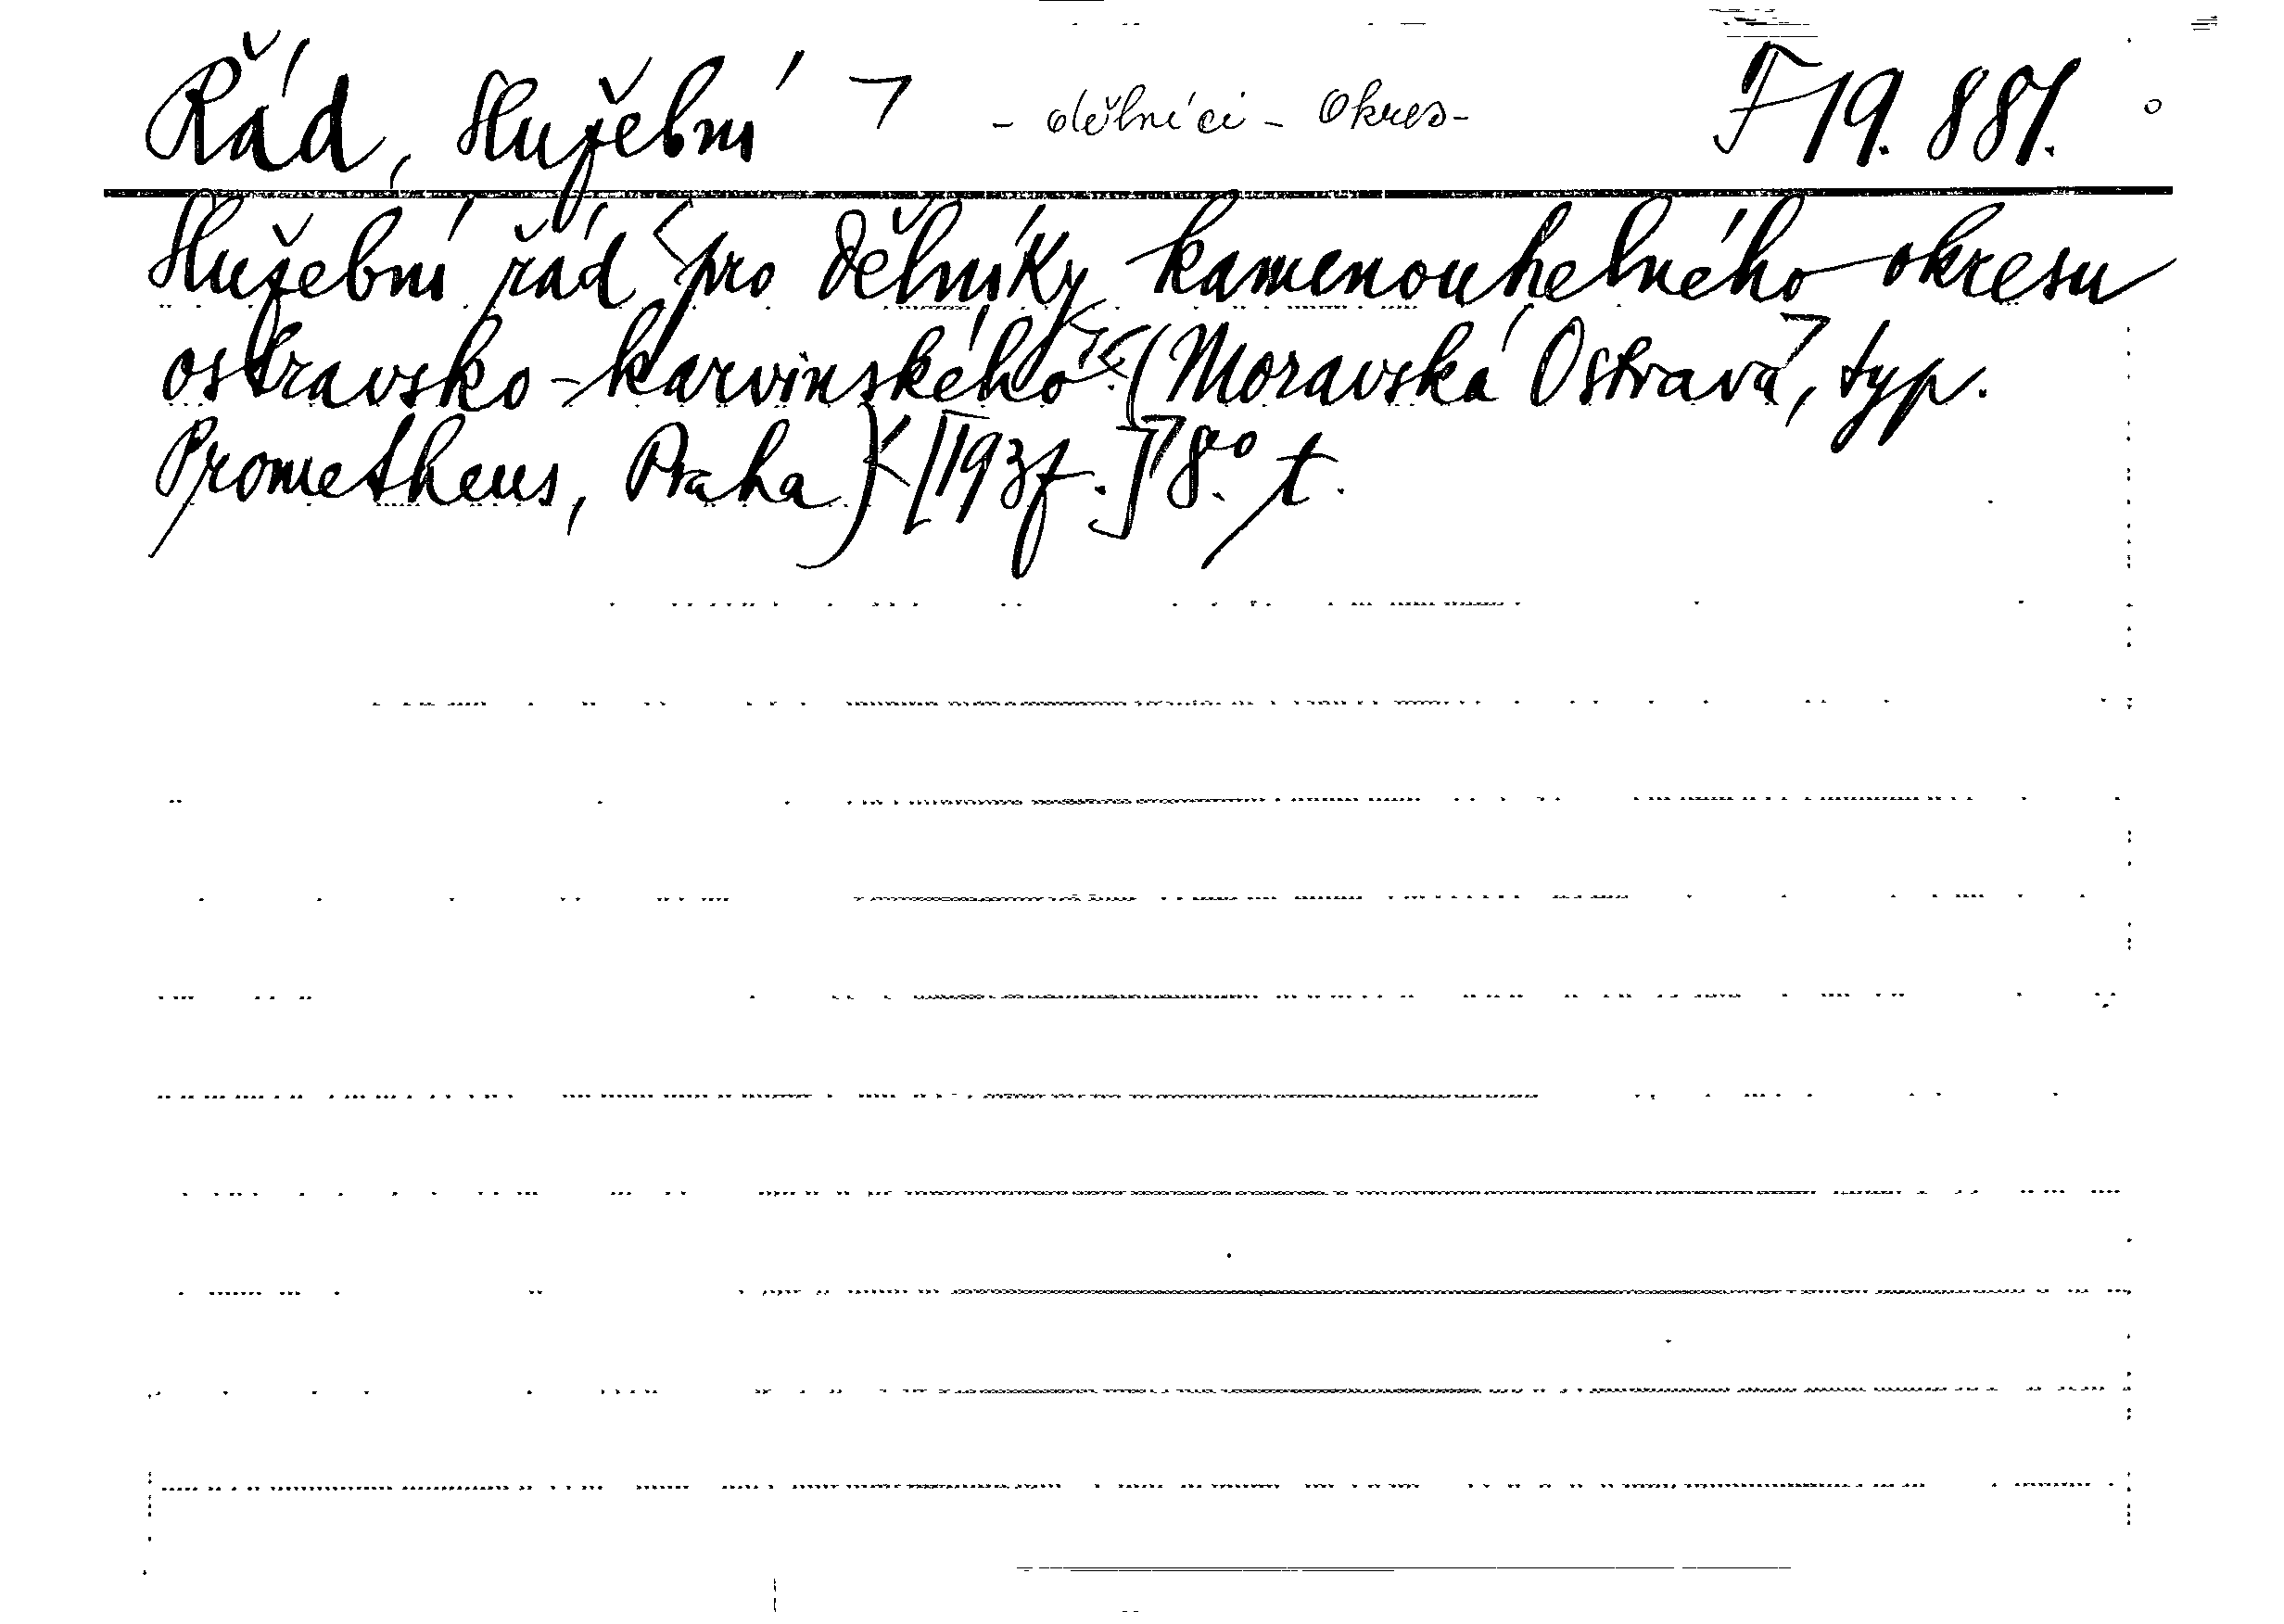 Řád, služební ¬ - dělníci - Okres - F 19.881.
Služební řád <pro dělníky kamenouhelného okresu
ostravsko-karvinského <(Moravská Ostrava¬, typ.
Prometheus, Praha)< [193?.]¬ 8.° t.